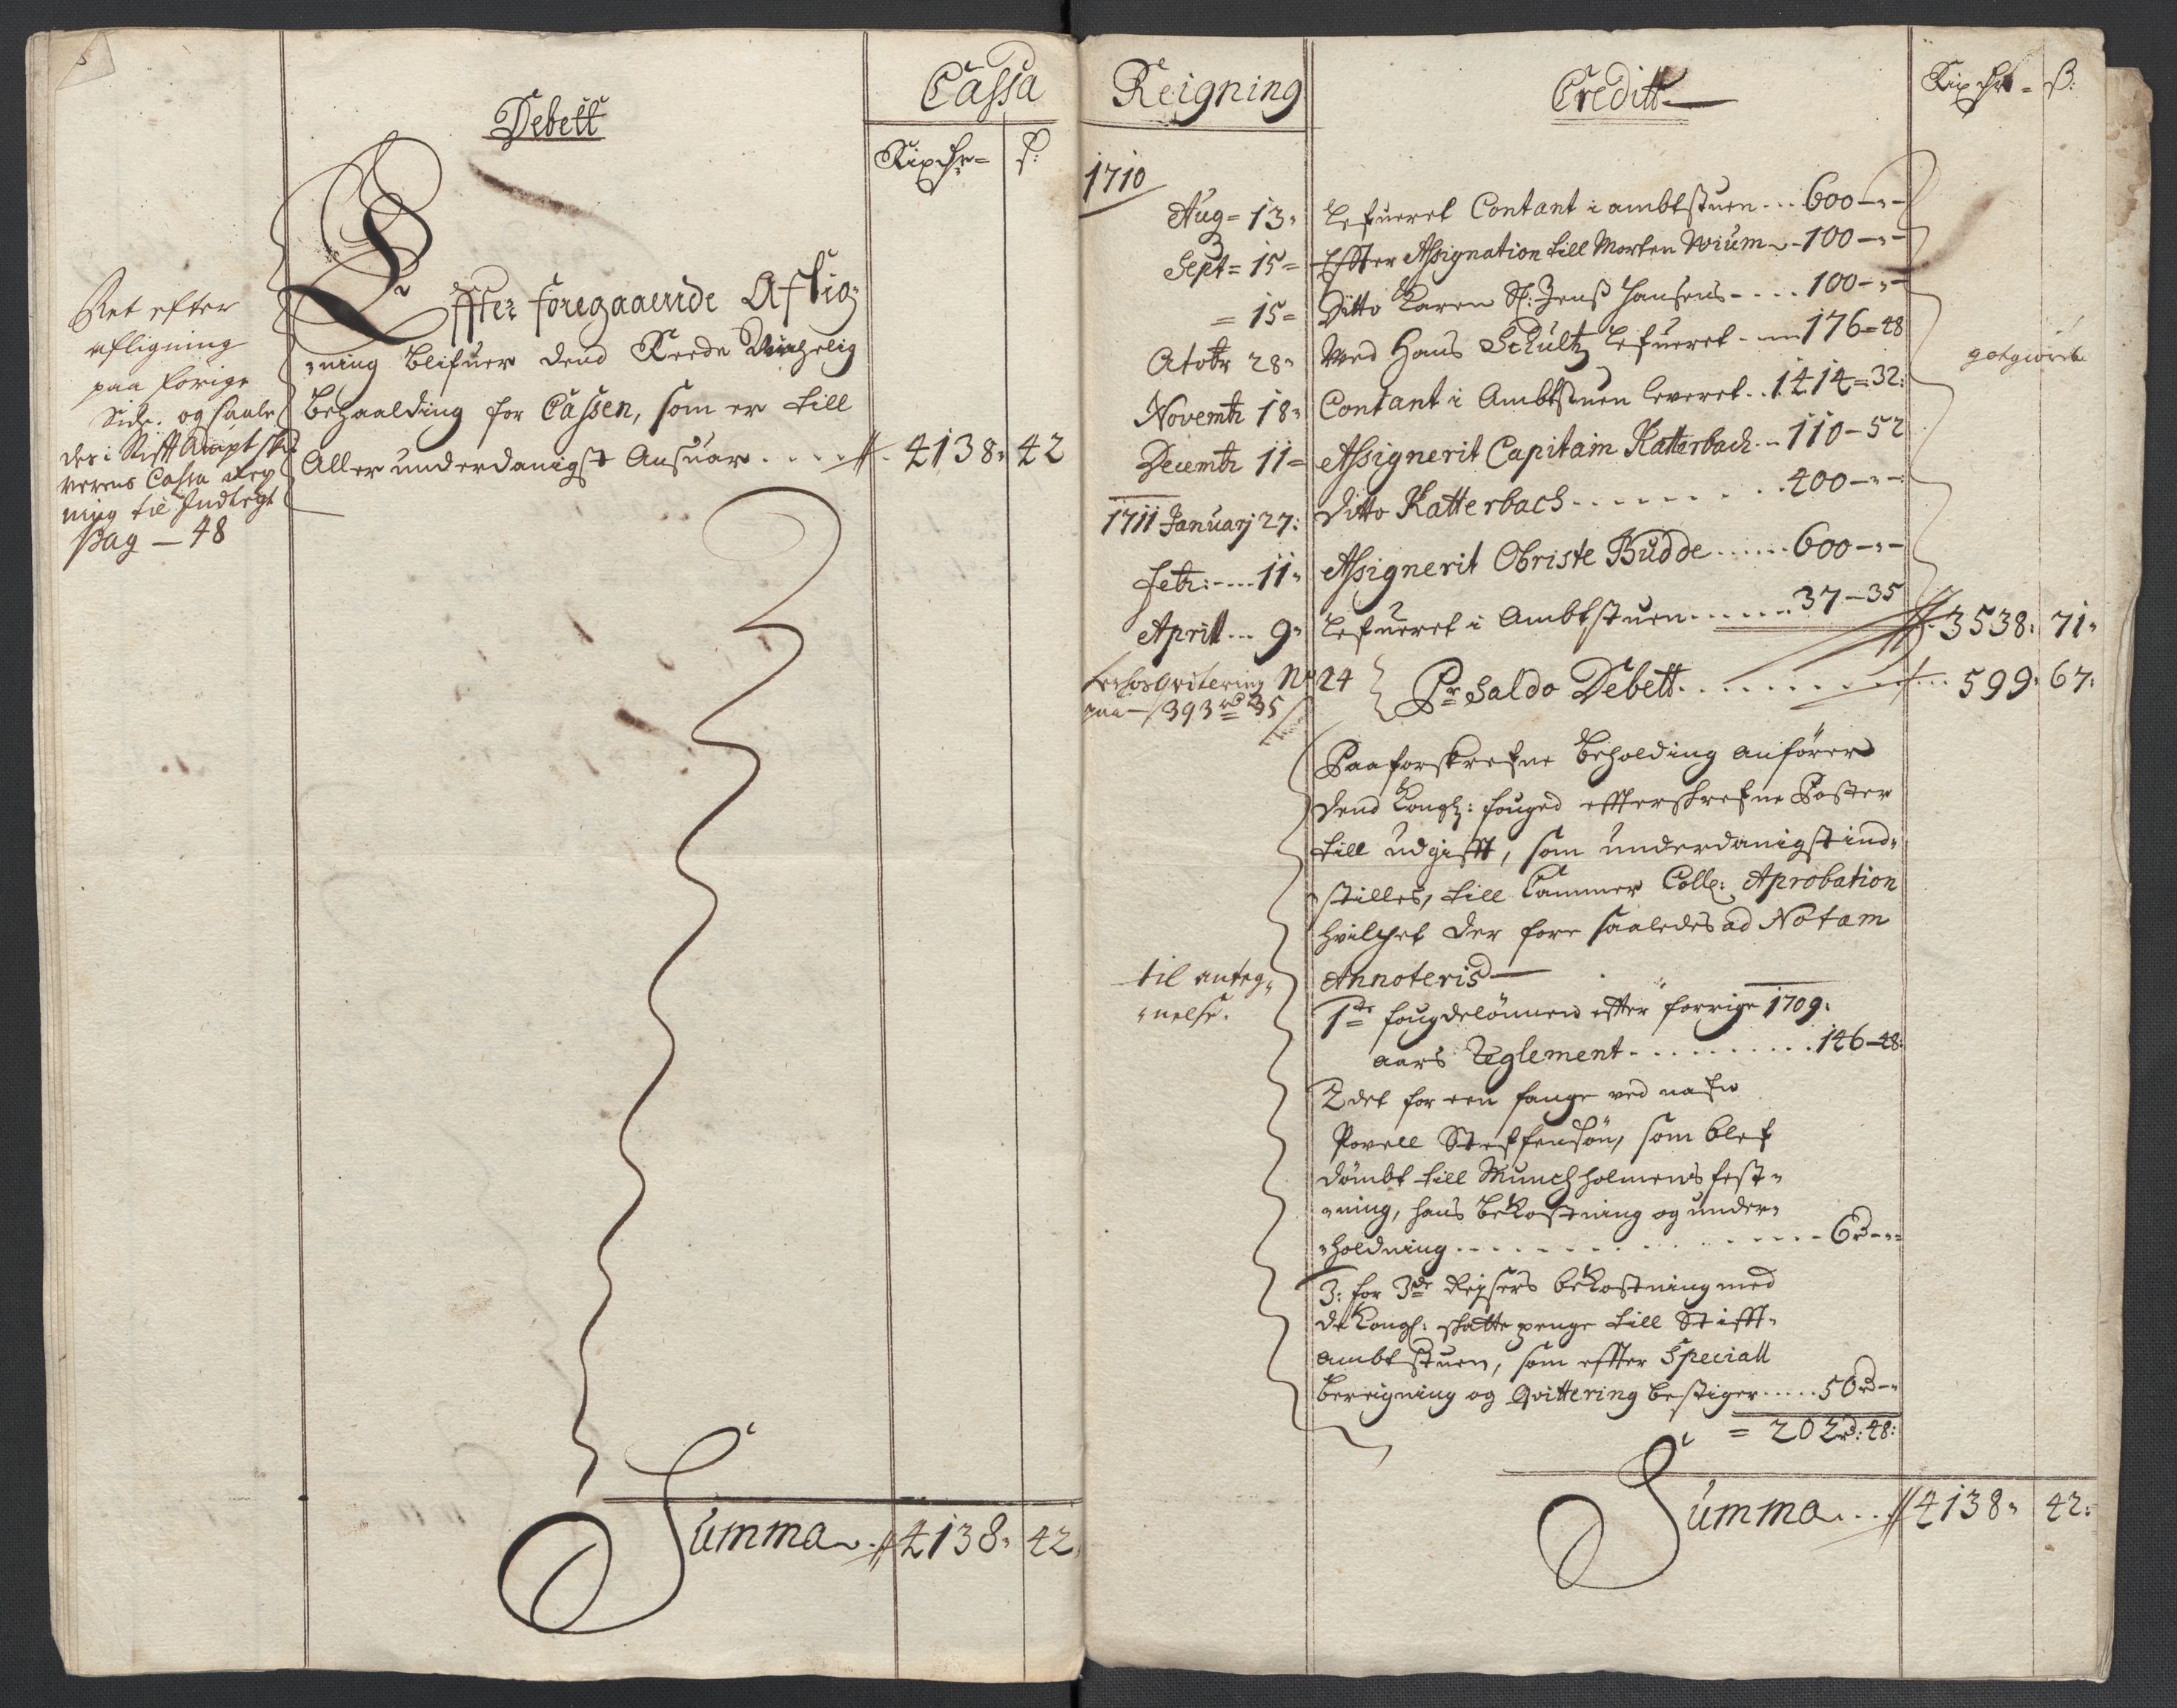 Cassa
Debett
Rixdr= ß:
Effter foregaaende Aflig=
=ning blifuer dend Reede Virchelig
behaalding for Cassen, som er till
Aller underdanigst Ansuar . . . . 4138: 42
Ret efter
afligning
paa forige
Side. og saale
des i Stift Ampt skri
verens Cassa Rey
ning til Indtegt
pag — 48
Summa 4138: 42
Reigning
Creditt
Rixdr= ß:
1710
Aug= 13: Lefueret Contant i ambtstuen . . . 600 — " —
Sept= 15= Effter Assignation till Morten Wium 100 — " —
= 15= Ditto Karen Sl: Jenß Hansens . . . . 100 — " —
Octobr 28: Med Hans Schultz Lefueret 176=48
Novembr 18: Contant i Ambtstuen leveret . . 1414=32:
gotgiört
Decembr 11= Assignerit Capitain Katterbach 110-52
1711 Januarj 27: Ditto Katterbach . . . . . . . 400 — " —
Febr: 11: Assignerit Obriste Budde . . . . . . 600 — " —
April . . . 9: Lefueret i Ambtstuen . . . . . . 37-35 3538: 71:
qvitering No 24
paa 393 rd 35
Pr Saldo Debett . . . . . . . . . 599: 67:
Paa forskrefne beholding anfører
dend Kongl: fouged effterskrefne Poster
till udgifft, som underdanigst ind=
stilles, till Cammer Coll: Aprobation
Hvilchet der fore saaledes ad Notam
Annoteris
til anteg=
=nelse.
1te fougdelönnen efter forrige 1709:
aars Reglement . . . . . . . . . 146-48:
2det for een fange ved nafn
Povell Steffensön, som blef
dömbt till Munchholmens fest=
=ning, hans bekostning og under=
=holdning . . . . . . . . . . . . 6 rd - "
3: for 3de Reyssers bekostning med
de Kongl: skatte penge till Stifft=
ambtstuen, som effter Speciall
bereigning og Qvittering bestiger . . . . . 50 rd - "
= 202 rd: 48:
Summa . . . 4138: 42: